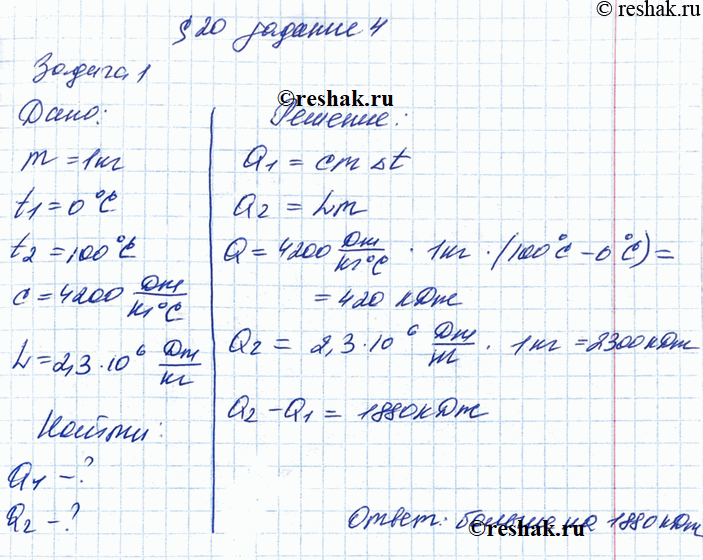 § 20 задание 4
Задача 1
©reshak.ru
Дано:
m = 1 кг
t₁ = 0 °C
t₂ = 100 °C
c = 4200 Дж/кг°C
L = 2,3 · 10⁶ Дж/кг
Найти:
Q₁ – ?
Q₂ – ?
Решение:
Q₁ = cm Δt
Q₂ = Lm
Q = 4200 Дж/кг°C · 1 кг · (100 °C – 0 °C) =
= 420 кДж
Q₂ = 2,3 · 10⁶ Дж/кг · 1 кг = 2300 кДж
Q₂ – Q₁ = 1880 кДж
Ответ: больше на 1880 кДж
©reshak.ru